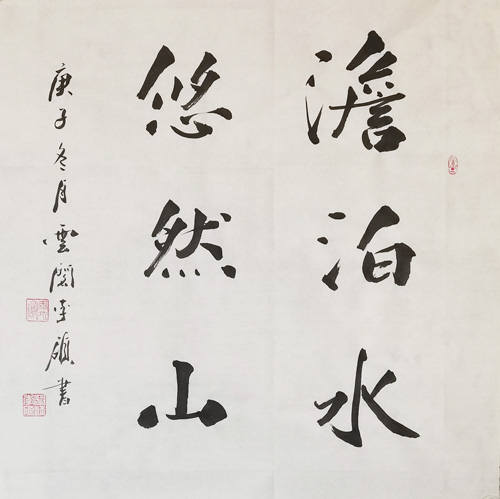 澹泊水
悠然山
庚子冬月雲閣李碩書